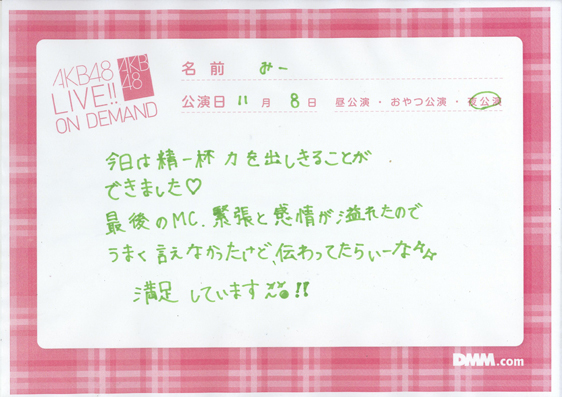 AKB48
LIVE!!
ON DEMAND
AKB
48
名前 みー
公演日 11月 8日 昼公演・おやつ公演・夜公演
今日は精一杯 力を出しきることが
できました♡
最後のMC、緊張と感情が溢れたので
うまく言えなかったけど、伝わってたらいーな☆☆
満足しています!!
DMM.com